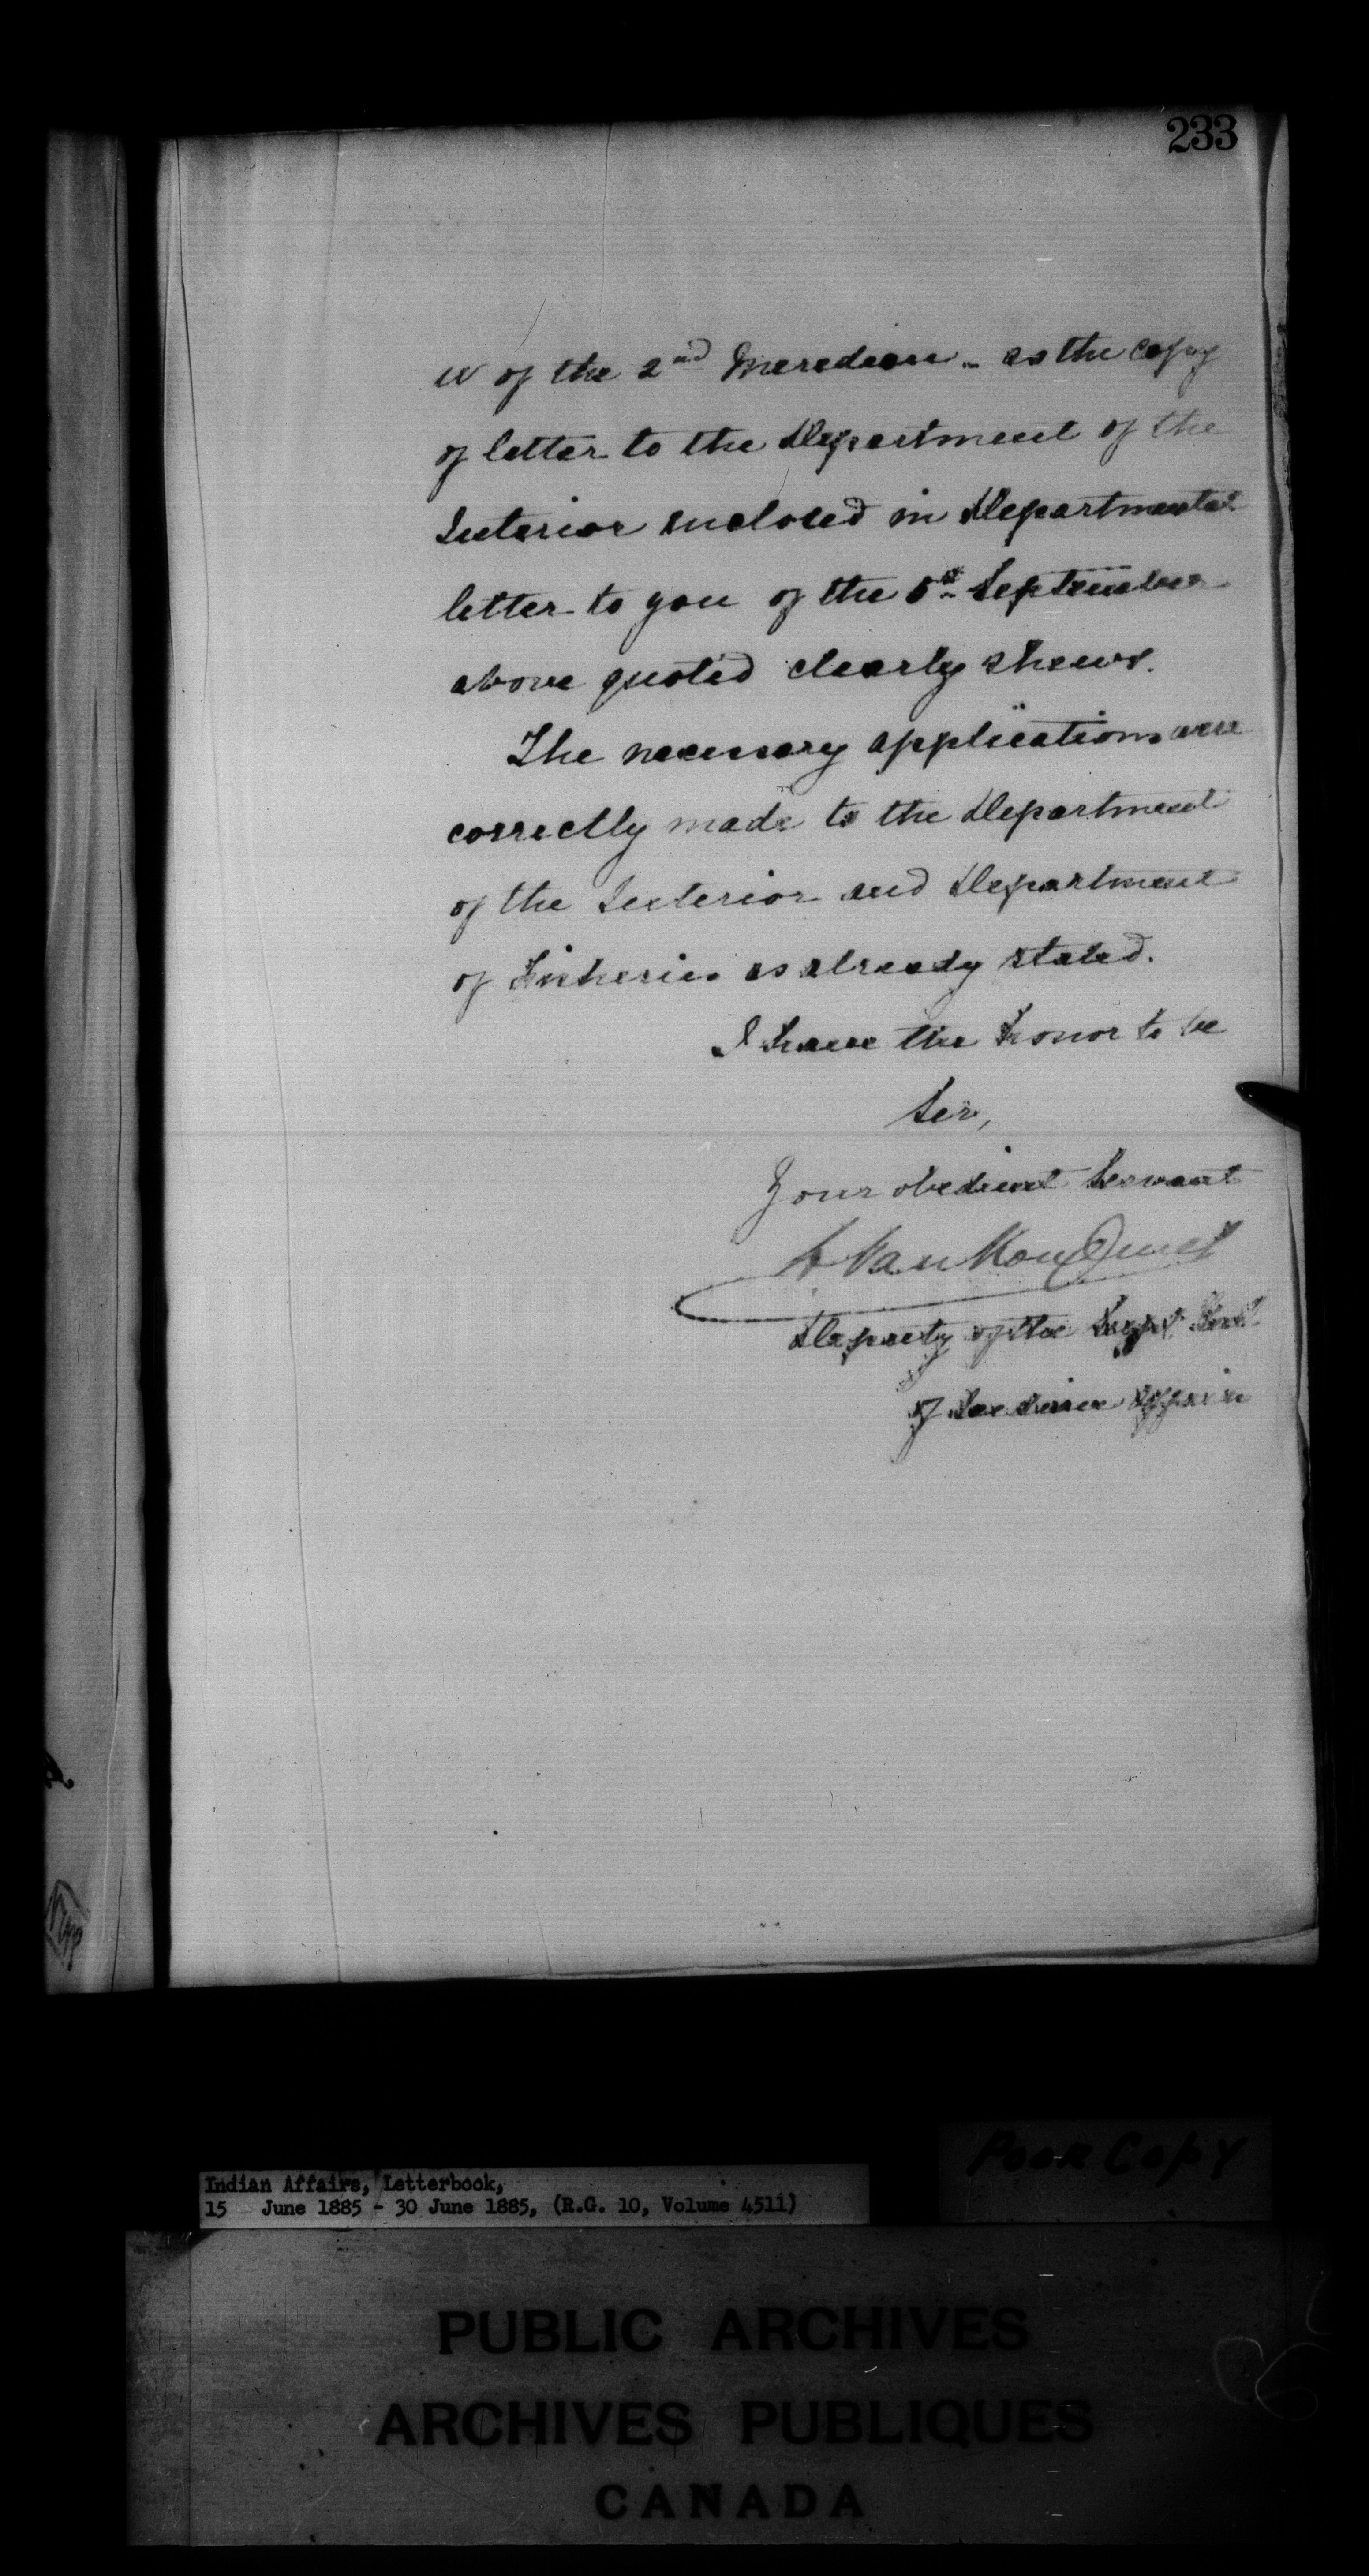 233
W of the 2nd Meredian - as the copy
of letter to the Department of the
Interior enclosed in Departmental
letter to you of the 5th September
above quoted clearly shews.
The necessary applications were
correctly made to the Department
of the Interior and Department
of Fisheries as already stated.
I have the honor to be
Sir,
Your obedient Servant
L VanKoughnet
Deputy of the Supt Genl.
of Indian Affairs
Poor Copy
Indian Affairs, Letterbook,
15 June 1885 - 30 June 1885, (R.G. 10, Volume 4511)
PUBLIC ARCHIVES
ARCHIVES PUBLIQUES
CANADA